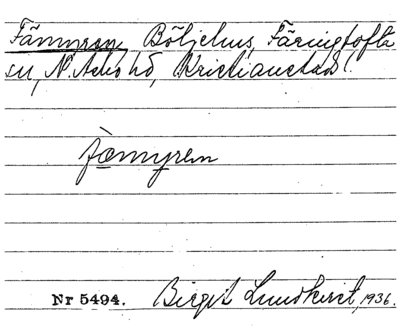 Fämyren, Böljehus, Färingtofta
sn, N. Åsbo hd, Kristianstads l.
fæmyren
Nr 5494. Birgit Lundkvist, 1936.